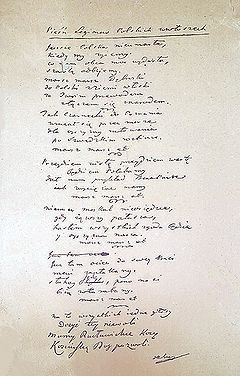 Pieśń Legionów Polskich we Włoszech
Jeszcze Polska nie umarła,
kiedy my żyjemy.
co nam obca moc wydarła,
szablą odbijemy.
marsz marsz Dąbrowski
do Polski z ziemi włoski
za Twoim przewodem
złączem się z narodem.
Jak Czarnecki do Poznania
wracał się przez morze
dla ojczyzny ratowania
po szwedzkim rozbiorze.
marsz marsz et
Przejdziem Wisłę przejdziem Wartę
będziem Polakami
dał nam przykład Bonaparte
jak zwyciężać mamy
marsz marsz et
niemiec moskal nie osiędzie,
gdy jąwszy pałasza,
hasłem wszystkich zgoda będzie
i ojczyzna nasza.
marsz marsz et
już tam ojciec do swej Basi
mówi zapłakany.
słuchaj jeno, pono nasi
biją w tarabany.
marsz marsz et
na to wszystkich jedne głosy
Dosyć tej niewoli
Mamy Racławickie Kosy
Kościuszkę Bóg pozwoli.